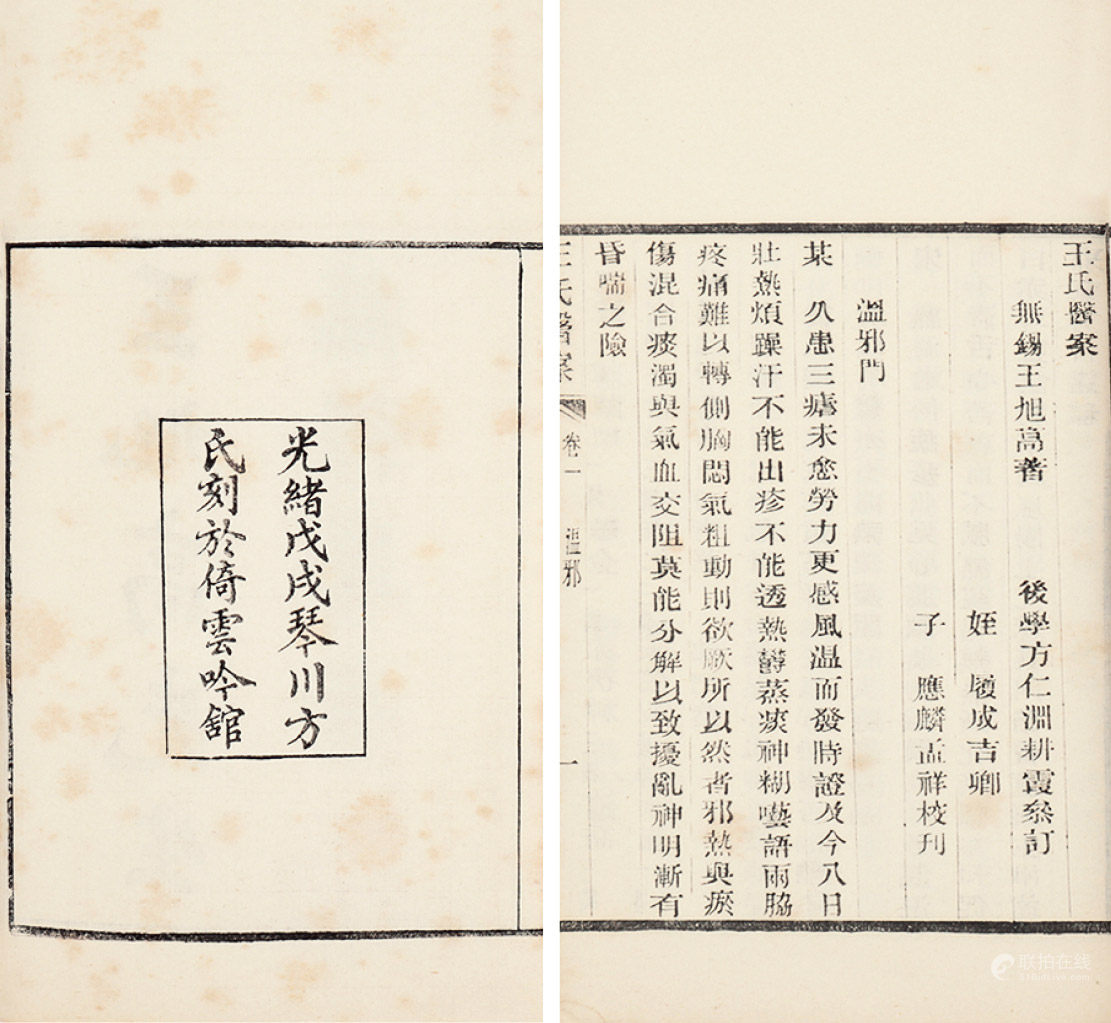 光緒戊戌琴川方
氏刻於倚雲吟舘
王氏醫案
無錫王旭高著 後學方仁淵耕霞叅訂
姪 履成吉卿
子 應麟孟祥校刊
溫邪門
某 久患三瘧未愈勞力更感風温而發時證及今八日
壯熱煩躁汗不能出疹不能透熱鬱蒸痰神糊囈語兩脇
疼痛難以轉側胸悶氣粗動則欲厥所以然者邪熱與瘀
傷混合痰濁與氣血交阻莫能分解以致擾亂神明漸有
昏喘之險
王氏醫案 卷一 溫邪 一
联拍在线